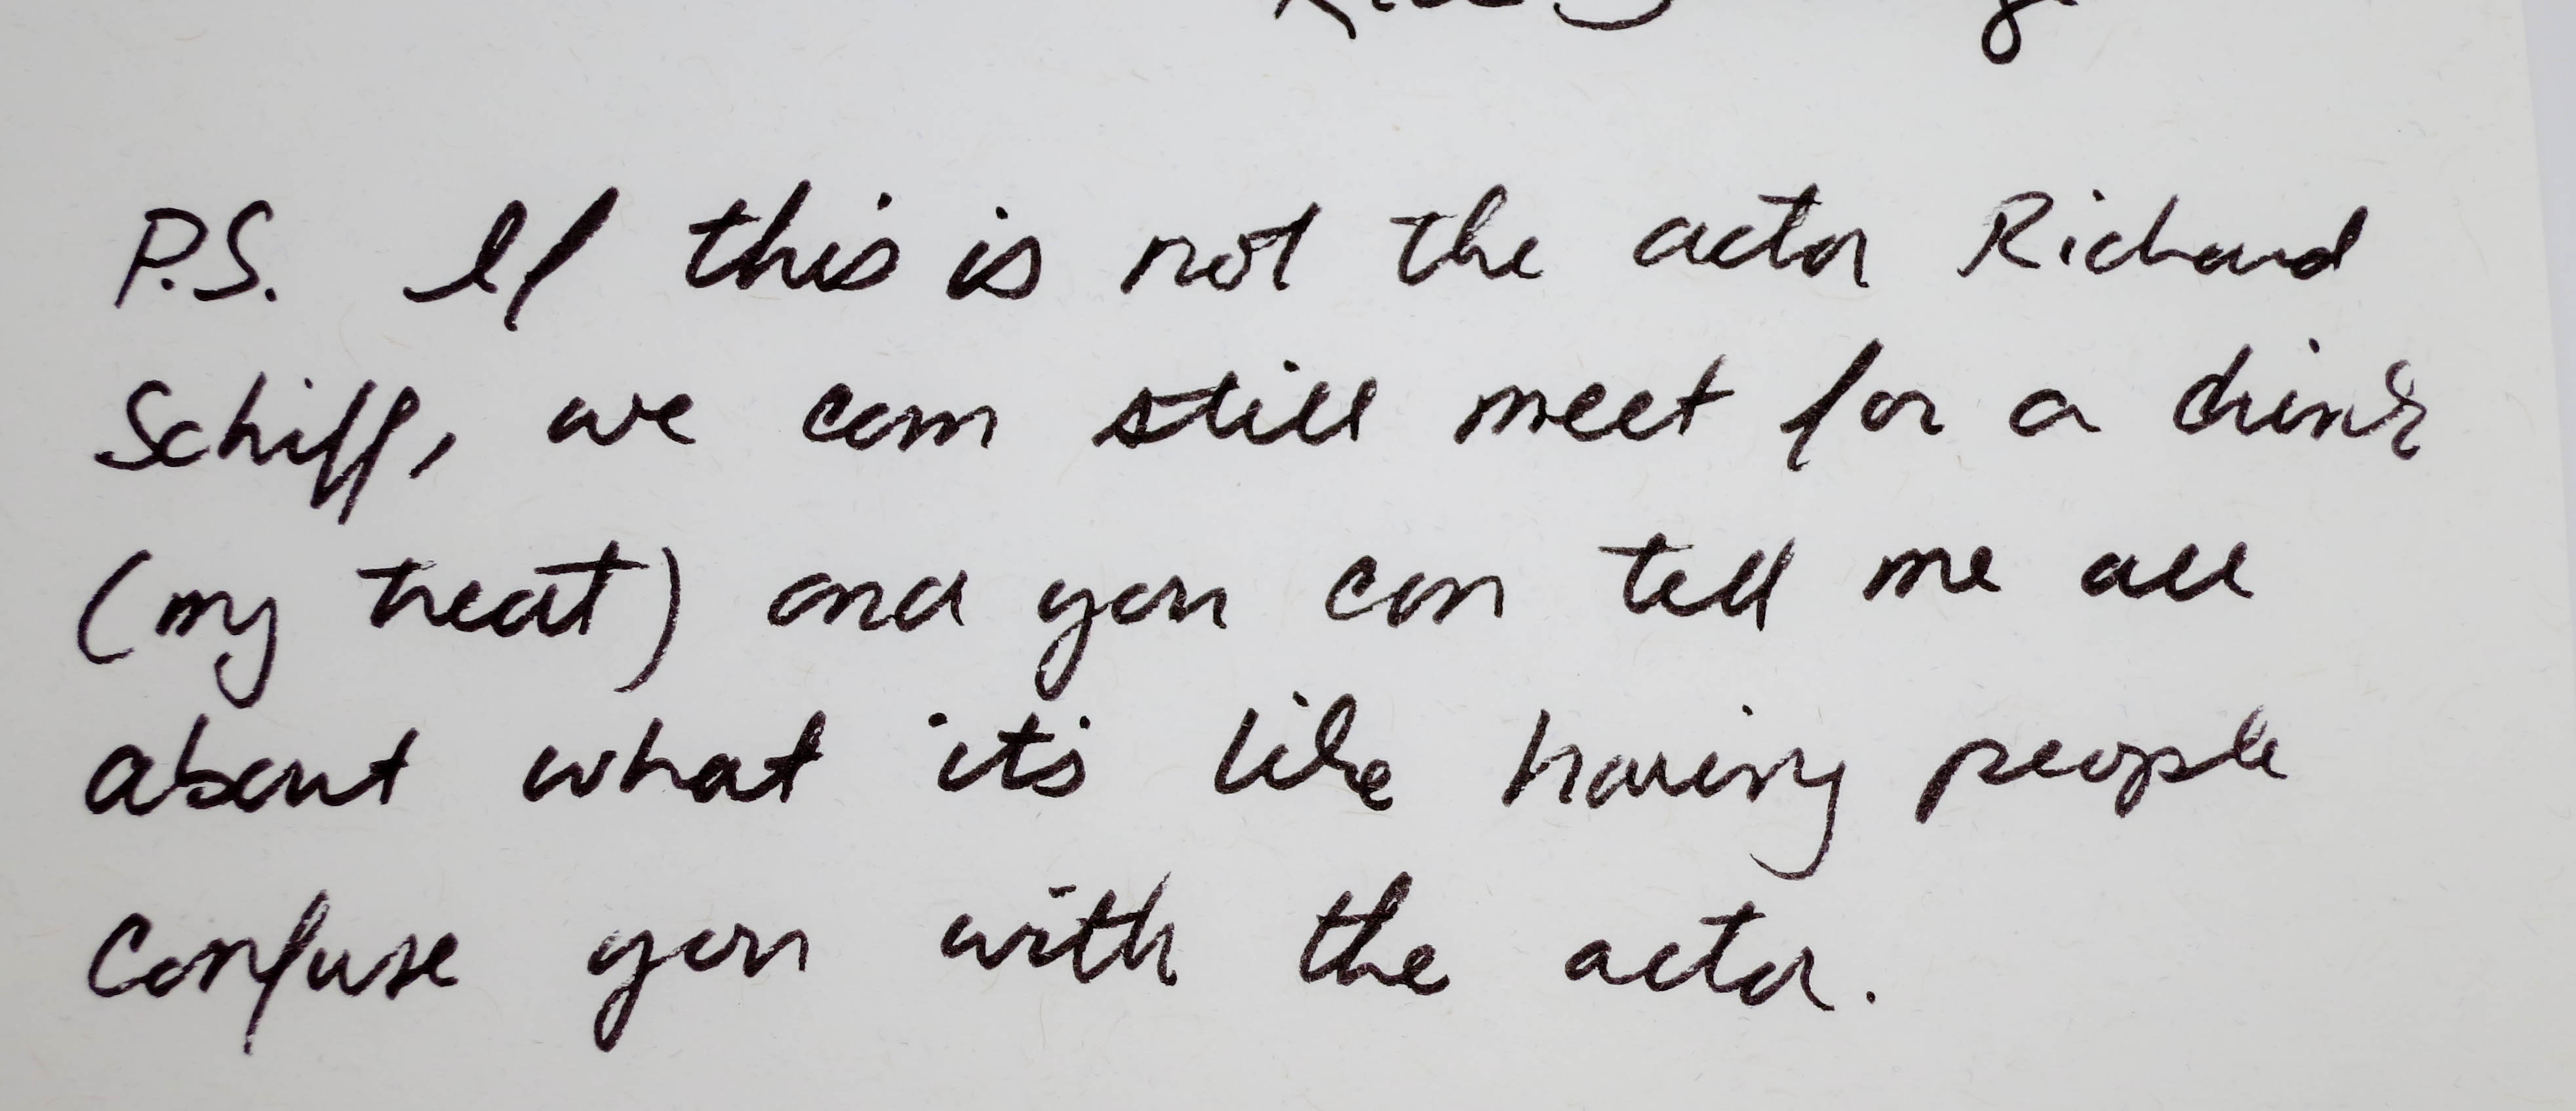 P.S. If this is not the actor Richard
Schiff, we can still meet for a drink
(my treat) and you can tell me all
about what it's like having people
confuse you with the actor.